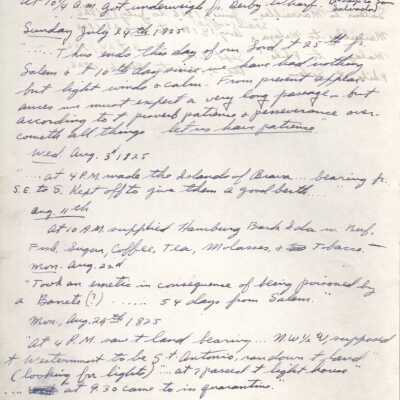 At 10½ A.M. got underweigh fr. Derby Wharf.
Salvador)
Sunday July 24th 1825
"..... Thus ends this day of our Lord & 25th fr.
Salem & t 10th day since we have had nothing
but light winds & calm. From present appear-
ances we must expect a very long passage - but
according to t proverb patience & perseverance over-
cometh all things let us have patience
Wed Aug. 3d 1825
"at 4 P.M. made the Islands of Brava ... bearing fr.
S.E. to S. Kept off to give them a good berth ...."
Aug 11th
At 10 A.M. supplied Hamburg Bark Ida w. Beef,
Fish, Sugar, Coffee, Tea, Molasses, & Tobacco. -
Mon. Aug. 22d
"Took an emetic in consequence of being poisoned by
a Boneto (!) ..... 54 days from Salem."
Mon, Aug. 29th 1825
"At 4 P.M. saw t land bearing ... N W ½ W, supposed
t Westernmost to be St Antonio, ran down t land
(looking for lights) "... at 7 passed t light house"
..... at 9.30 came to in quarantine."